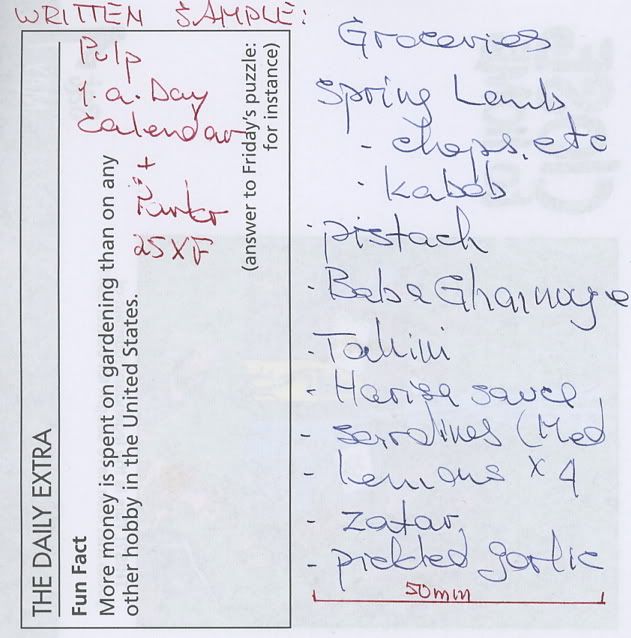 WRITTEN SAMPLE:
Pulp
1.a.Day
Calendar
+
Parker
25 XF
THE DAILY EXTRA
Fun Fact
More money is spent on gardening than on any
other hobby in the United States.
(answer to Friday's puzzle:
for instance)
Groceries
Spring Lamb
- chops, etc
- kabob
- pistach
- Baba
- Tahini
- Harisa sauce
- sardines (Med
- lemons x 4
- zatar
- pickled garlic
50mm